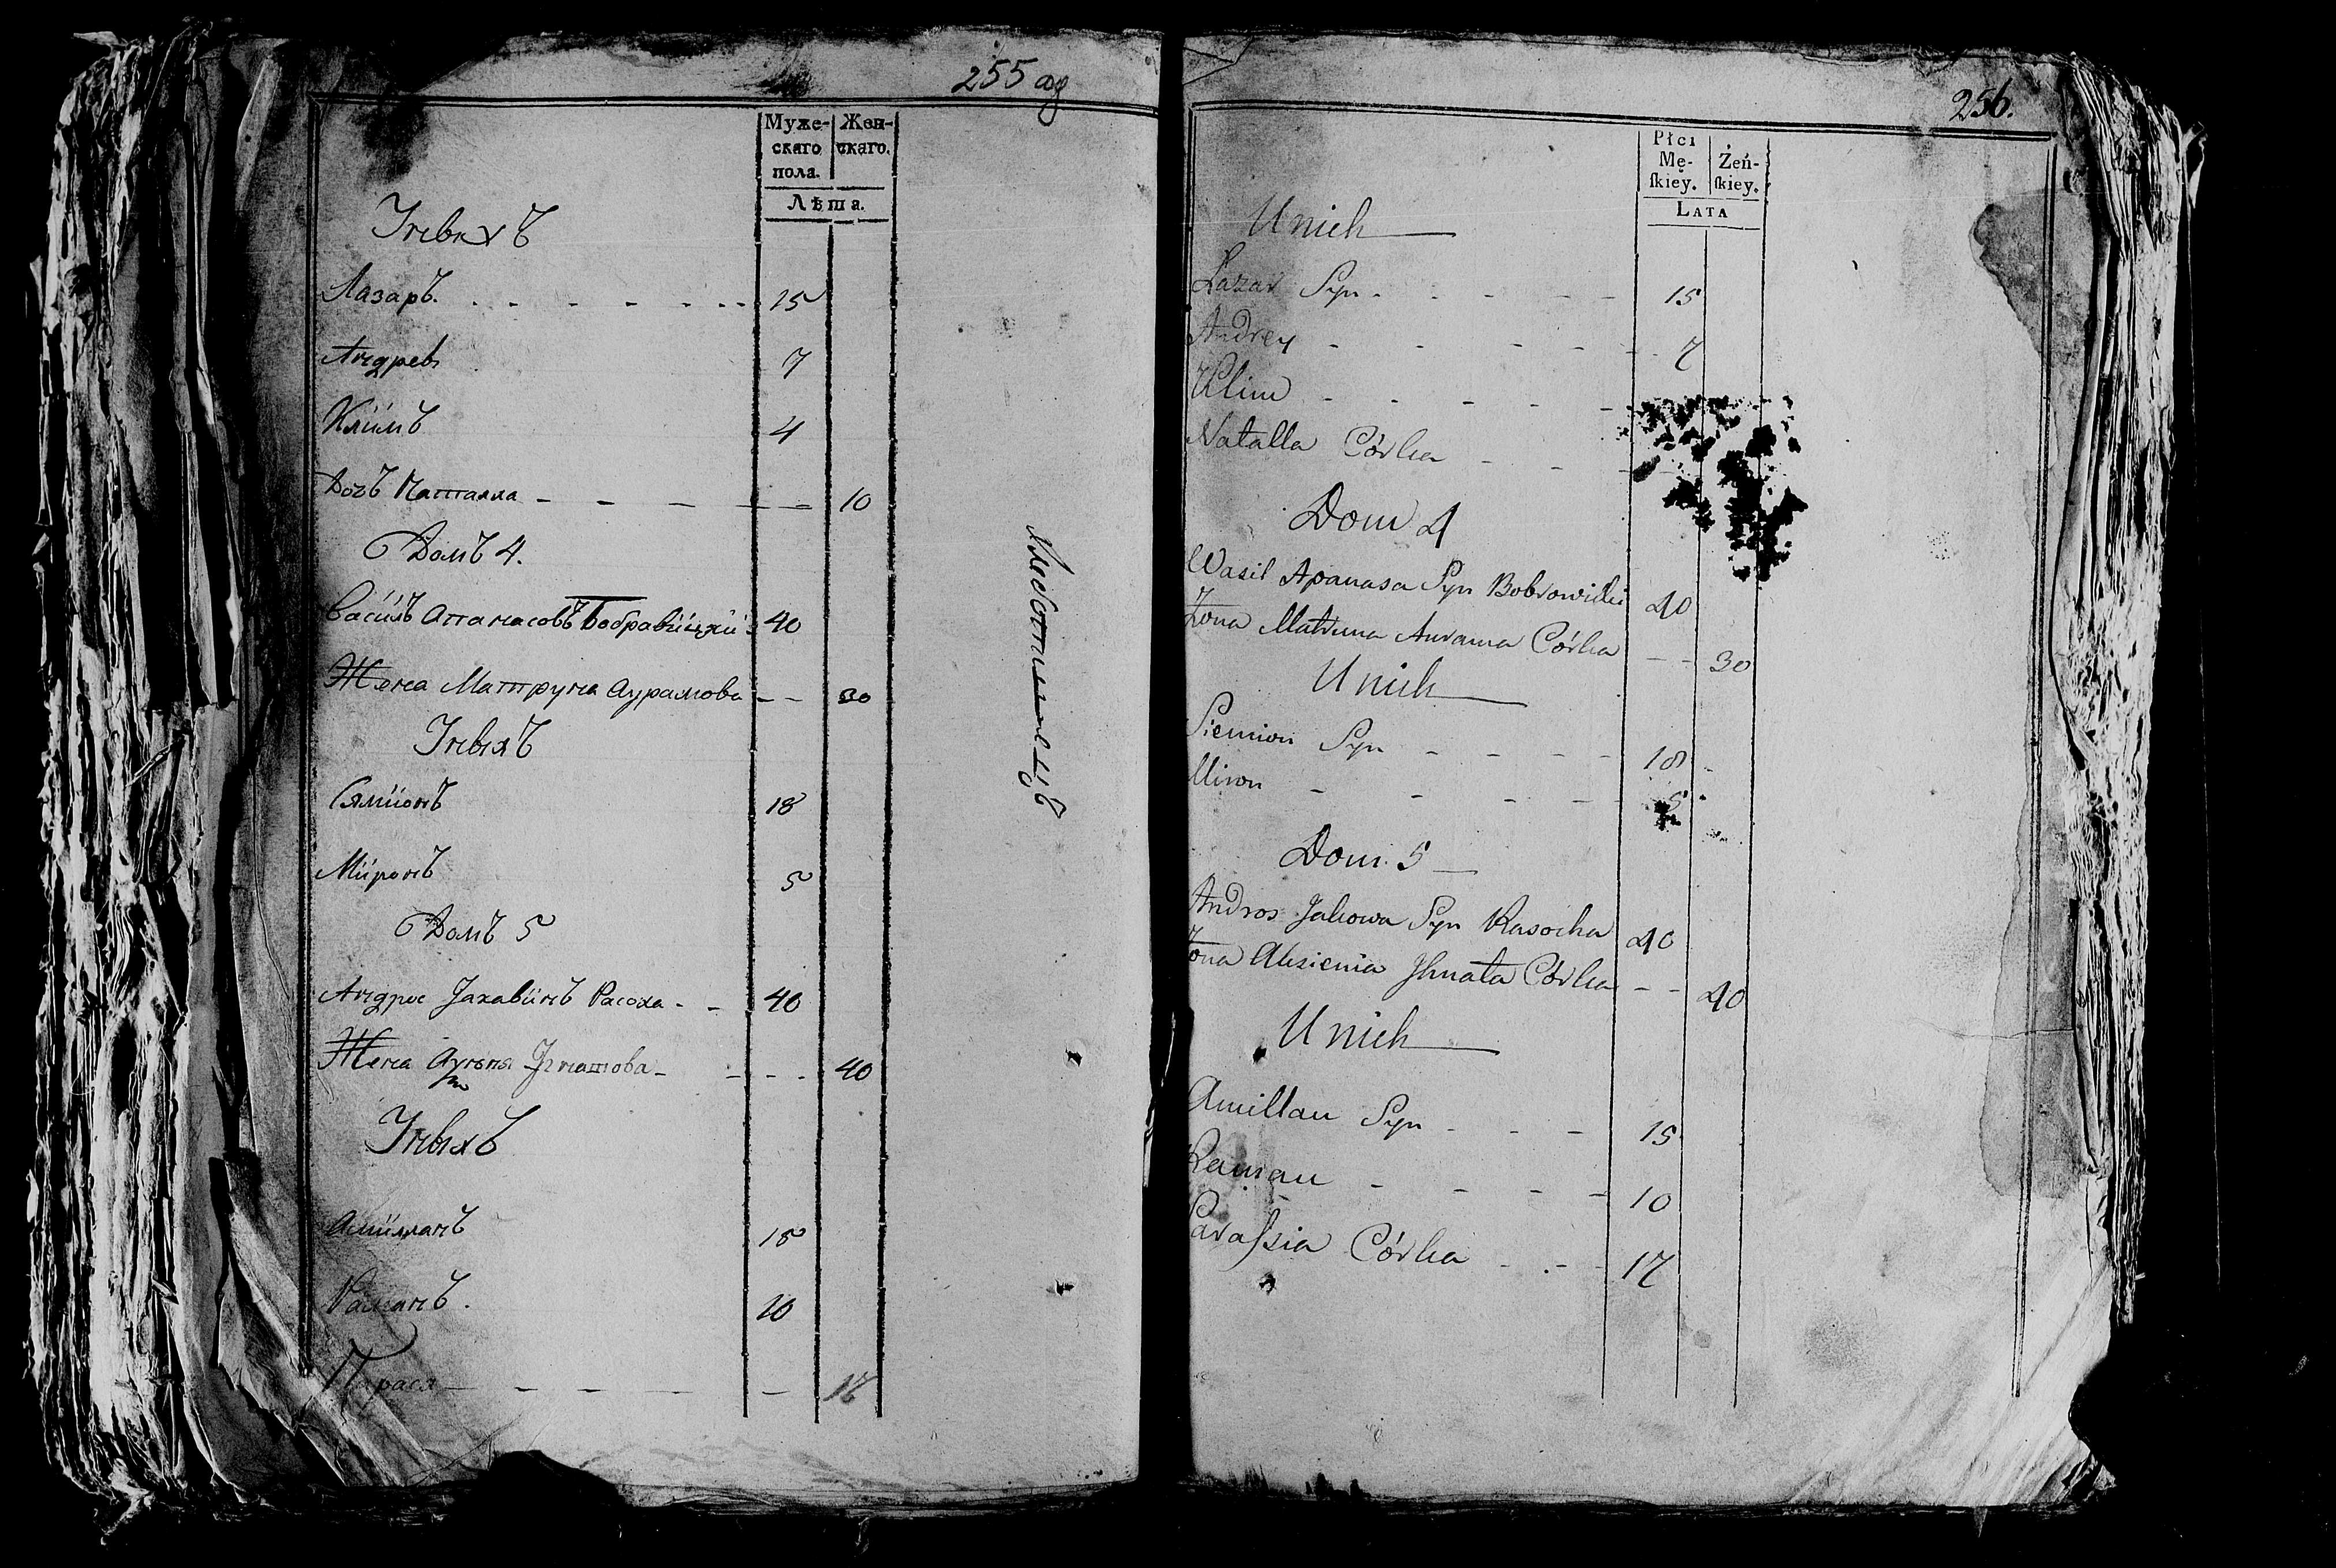 255 об
Муже-
скаго
пола.
Жен-
скаго.
Лѣта.
Унихъ
Лазаръ. 15
Андрей 7
Клїмъ 4
Дочъ Наталла 10
Домъ 4.
Васїль Апанасовъ Бобравїцкїй 40
Жена Матруна Аурамова 30
Унихъ
Сямїонъ 18
Мїронъ 5
Домъ 5
Андрос Јаковїнъ Расоха 40
Жена Јгнатова 40
Унихъ
Амїллянъ 15
Раманъ. 10
Парася
256.
Płci
Mę-
skiey.
Żeń-
skiey.
Lata
U nich
Łazar Syn 15
Andrey 7
Klim
Natalla Córka
Dom 4
Wasil Apanasa Syn Bobrowicki 40
Żona Matruna Aurama Córka 30
U nich
Siemion Syn 18
Miron 5
Dom 5
Andros Jakowa Syn Rasocha 40
Żona Aksienia Jhnata Córka 40
U nich
Amillan Syn 15
Raman 10
Parassia Córka 17